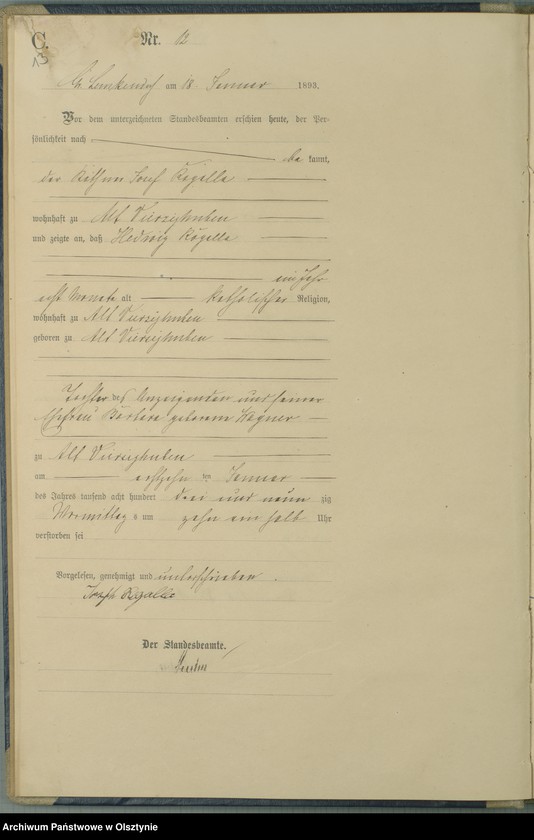 C.
13
Nr. 12
Gr. Lemkendorf am 18. Januar 1893.
Vor dem unterzeichneten Standesbeamten erschien heute, der Per-
sönlichkeit nach
be kannt,
der Josef Rogalla
wohnhaft zu Alt Vierzighuben
und zeigte an, daß Hedwig Rogalla
ein Jahr
acht Monate alt katholischer Religion,
wohnhaft zu Alt Vierzighuben
geboren zu Alt Vierzighuben
Tochter des Anzeigenden und seiner
Ehefrau Barbara geborenen Wagner
zu Alt Vierzighuben
am achtzehn ten Januar
des Jahres tausend acht hundert drei und neun zig
Vormittag s um zehn ein halb Uhr
verstorben sei
Vorgelesen, genehmigt und unterschrieben.
Joseph Rogalla
Der Standesbeamte.
Archiwum Państwowe w Olsztynie